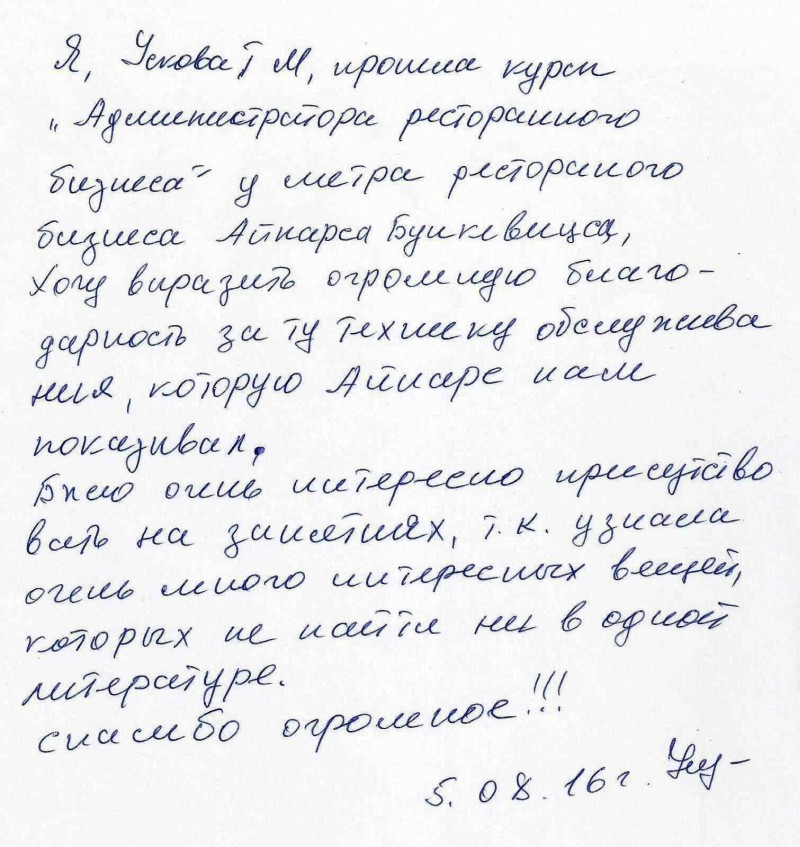 Я, Ускова Т М, прошла курсы
„Администратора ресторанного
бизнеса" у метра ресторанного
бизнеса Айнарса Бункевицса,
Хочу виразить огромную благо-
дарность за ту технику обслужива
ния, которую Айнарс нам
показивал.
Было очень интересно присутство
вать на занятиях, т.к. узнала
очень много интересных вещей,
которых не найти ни в одной
литературе.
спасибо огромное!!!
5. 08. 16 г.